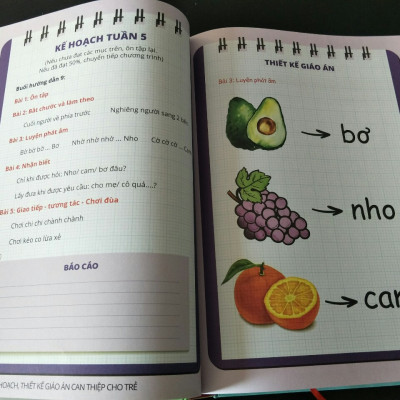 KẾ HOẠCH TUẦN 5
(Nếu chưa đạt các mục trên, ôn tập lại.
Nếu đã đạt 50%, chuyển tiếp chương trình)
Buổi hướng dẫn 9:
Bài 1: Ôn tập
Bài 2: Bắt chước và làm theo
Cuối người về phía trước
Nghiêng người sang 2 bên
Bài 3: Luyện phát âm
Bờ bơ bơ ... Bơ
Nhờ nhờ nhờ ... Nho
Cờ cờ cờ ...
Bài 4: Nhận biết
Chỉ khi được hỏi: Nho/ cam/ bơ đâu?
Lấy đưa khi được yêu cầu: cho mẹ/ cô quả....?
Bài 5: Giao tiếp - tương tác - Chơi đùa
Chơi chi chi chành chành
Chơi kéo co lừa xẻ
BÁO CÁO
HOẠCH, THIẾT KẾ GIÁO ÁN CAN THIỆP CHO TRẺ
THIẾT KẾ GIÁO ÁN
Bài 3: Luyện phát âm
bơ
nho
cam